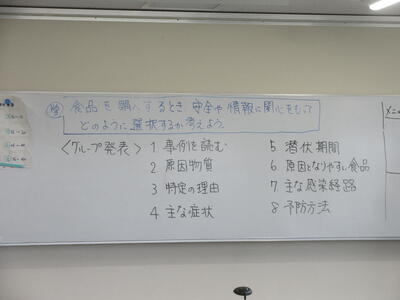 食品を購入するとき、安全や情報に関心をもって
どのように選択するか考えよう。
〈グループ発表〉
1 事例を読む
2 原因物質
3 特定の理由
4 主な症状
5 潜伏期間
6 原因となりやすい食品
7 主な感染経路
8 予防方法
メニ